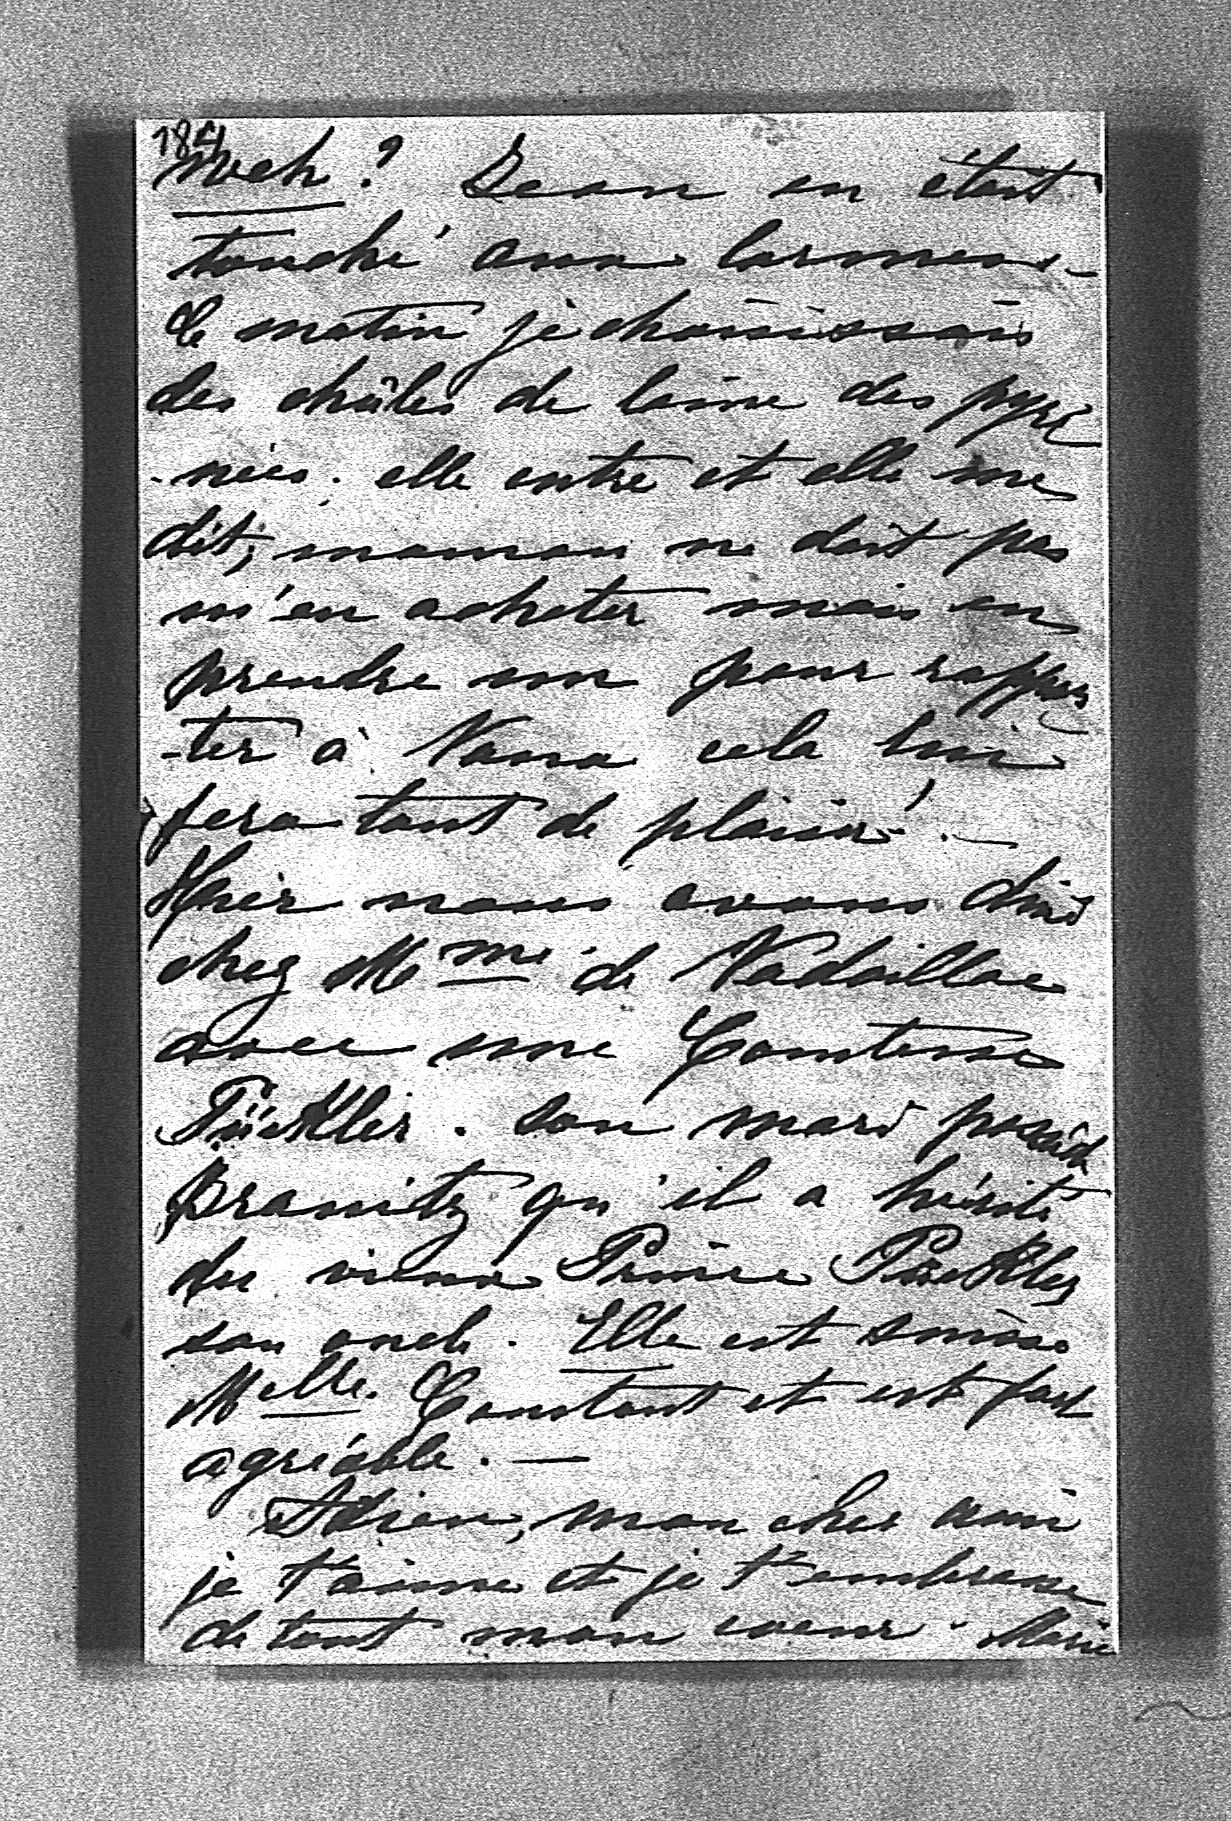 184
weh? Jean en était
touché aux larmes. -
Ce matin je choisissais
des châles de laine des pyré
-nées. elle entre et elle me
dit, maman ne doit pas
m'en acheter mais en
prendre un pour rappor
-ter à Nana cela lui
fera tant de plaisir! -
Hier nous avons diné
chez Mme de Nadaillac
avec une Comtesse
Pückler. son mari possède
Branitz qu'il a hérité
du vieux Prince Pückler
son oncle. Elle est suisse
Melle. Constant et est fort
agréable. -
Adieu, mon cher ami
je t'aime et je t'embrasse
de tout mon coeur. Marie